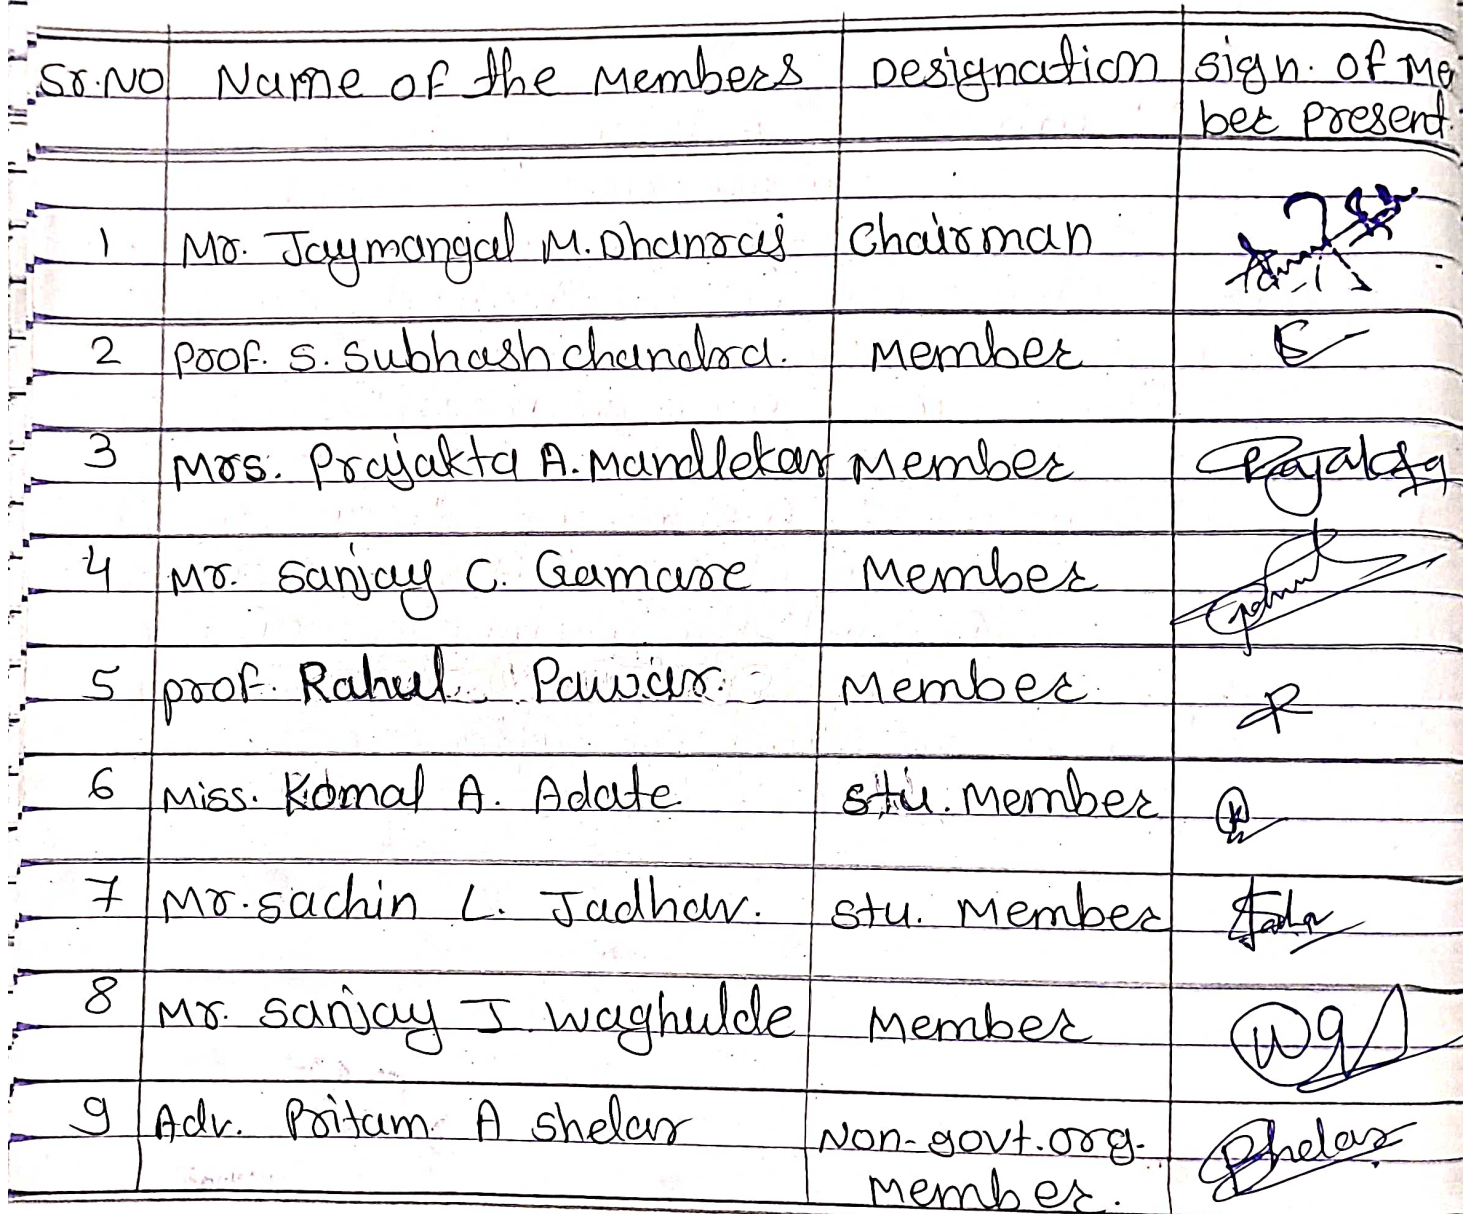 Sr.No Name of the Members Designation sign. of Me
ber present.
1 Mr. Jaymangal M. Dhanraj Chairman
2 Prof. S. Subhash chandra. Member
3 Mrs. Prajakta A. Mandlekar Member Prajakta
4 Mr. Sanjay C. Gamare Member
5 prof. Rahul Pawar. Member
6 Miss. Komal A. Adate stu. Member
7 Mr. sachin L. Jadhav. stu. Member
8 Mr. Sanjay J. Waghulde Member
9 Adv. Pritam A Shelar Non-govt.org.
Member. Shelar